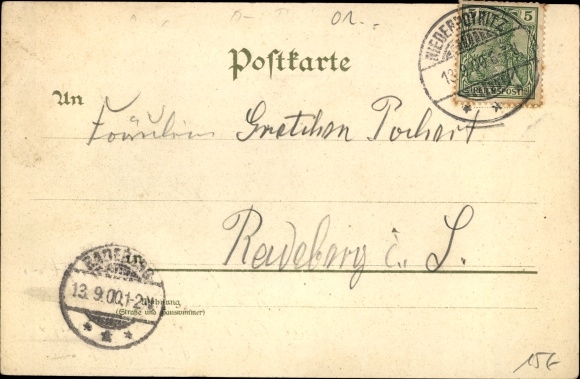 01.
Postkarte
NIEDERPOYRITZ
13.9.00
5
REICHSPOST
An
Fräulein Gretchen Pochert
Radeberg i. S.
in
RADEBERG
13.9.00.1-2N.
Wohnung
(Straße und Hausnummer)
156